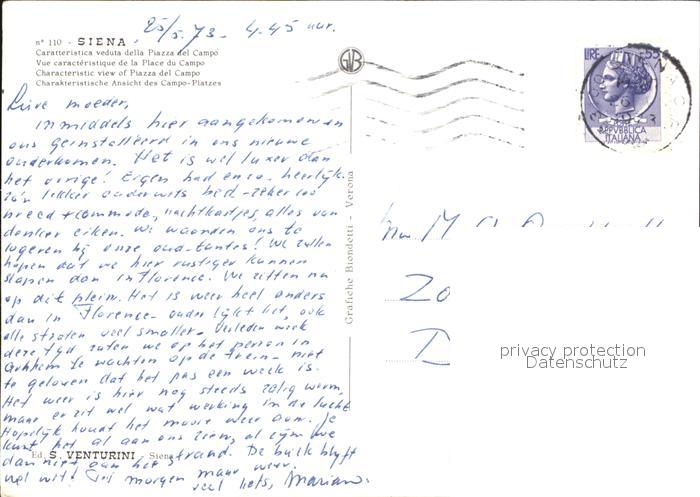 25/5.73. 4.45 uur.
n° 110 - SIENA
Caratteristica veduta della Piazza del Campo
Vue caractéristique de la Place du Campo
Characteristic view of Piazza del Campo
Charakteristische Ansicht des Campo-Platzes
GVB
LIRE 55
REPVBBLICA
ITALIANA
Lieve moeder,
inmiddels hier aangekomen en
ons geinstalleerd in ons nieuwe
onderkomen. Het is wel luxer dan
het vorige! Eigen bad enzo - heerlijk.
zo'n lekker ouderwets bed - zeker 100
breed + commode, nachtkastjes, alles van
donker eiken. We waanden ons te
logeren bij onze oud-tantes! We zullen
hopen dat we hier rustiger kunnen
slapen dan in Florence. We zitten nu
op dit plein. Het is weer heel anders
dan in Florence - ouder lijkt het, ook
alle straten veel smaller - verleden week
deze tijd zaten we op het perron in
Arnhem te wachten op de trein - niet
te geloven dat het pas een week is.
Het weer is hier nog steeds zalig warm,
maar er zit wel wat werking in de lucht
Hopelijk houdt het mooie weer aan. Je
kunt het al aan ons zien, al zijn we
dan niet aan het strand. De buik blijft
wel wit! Tot morgen maar weer.
veel liefs, Marian.
Ed. S. VENTURINI - Siena
Grafiche Biondetti - Verona
M
Zo
privacy protection
Datenschutz